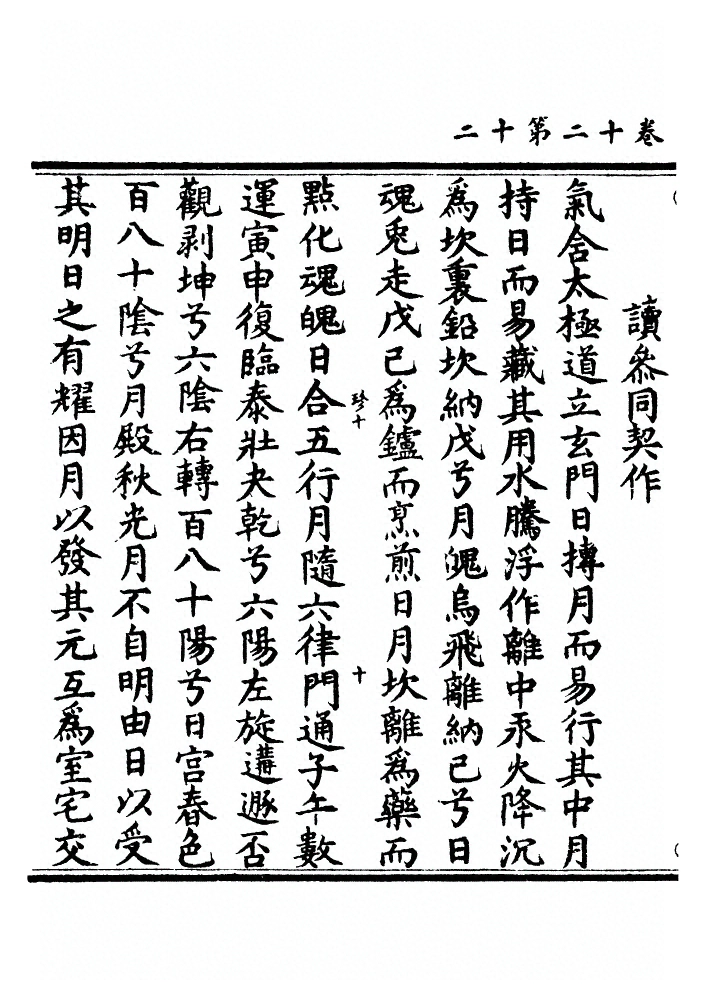 卷十二第十二
讀參同契作
氣含太極道立玄門日摶月而易行其中月
持日而易藏其用水騰浮作離中汞火降沉
為坎裏鉛坎納戊兮月魄烏飛離納己兮日
魂兎走戊己為鑪而烹煎日月坎離為藥而
點化魂魄日合五行月隨六律門通子午數
珍十
十
運寅申復臨泰壯夬乾兮六陽左旋遘遯否
觀剥坤兮六陰右轉百八十陽兮日宫春色
百八十陰兮月殿秋光月不自明由日以受
其明日之有耀因月以發其元互為室宅交